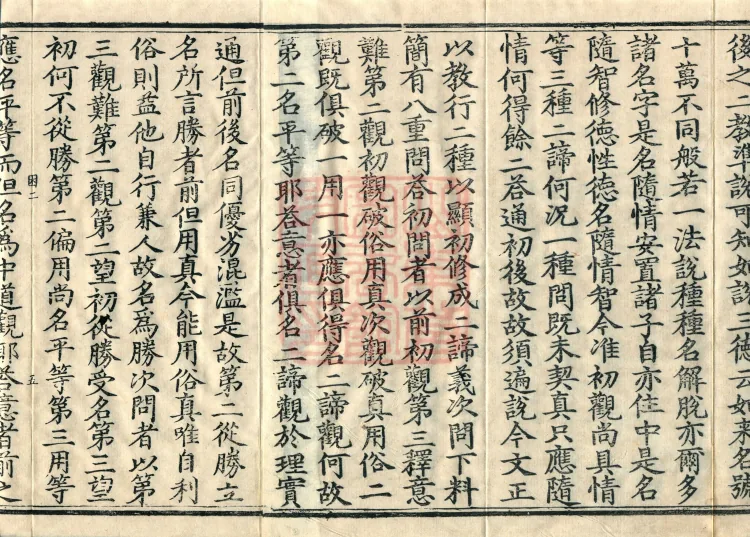 後之二教準說可知如說三德云如來名號
十萬不同般若一法說種種名解脫亦爾多
諸名字是名隨情安置諸子自亦住中是名
隨智修德性德名隨情智今准初觀尚具情
等三種二諦何況一種問既未契真只應隨
情何得餘二答通初後故故須遍說今文正
以教行二種以顯初修成二諦義次問下料
簡有八重問答初問者以前初觀第三釋意
難第二觀初觀破俗用真次觀破真用俗二
觀既俱破一用一亦應俱得名二諦觀何故
第二名平等耶答意者俱名二諦觀於理實
通但前後名同優劣混濫是故第二從勝立
名所言勝者前但用真今能用俗真唯自利
俗則益他自行兼人故名為勝次問者以第
三觀難第二觀第二望初從勝受名第三望
初何不從勝第二偏用尚名平等第三用等
困二
五
應名平等而但名為中道觀耶答意者前之